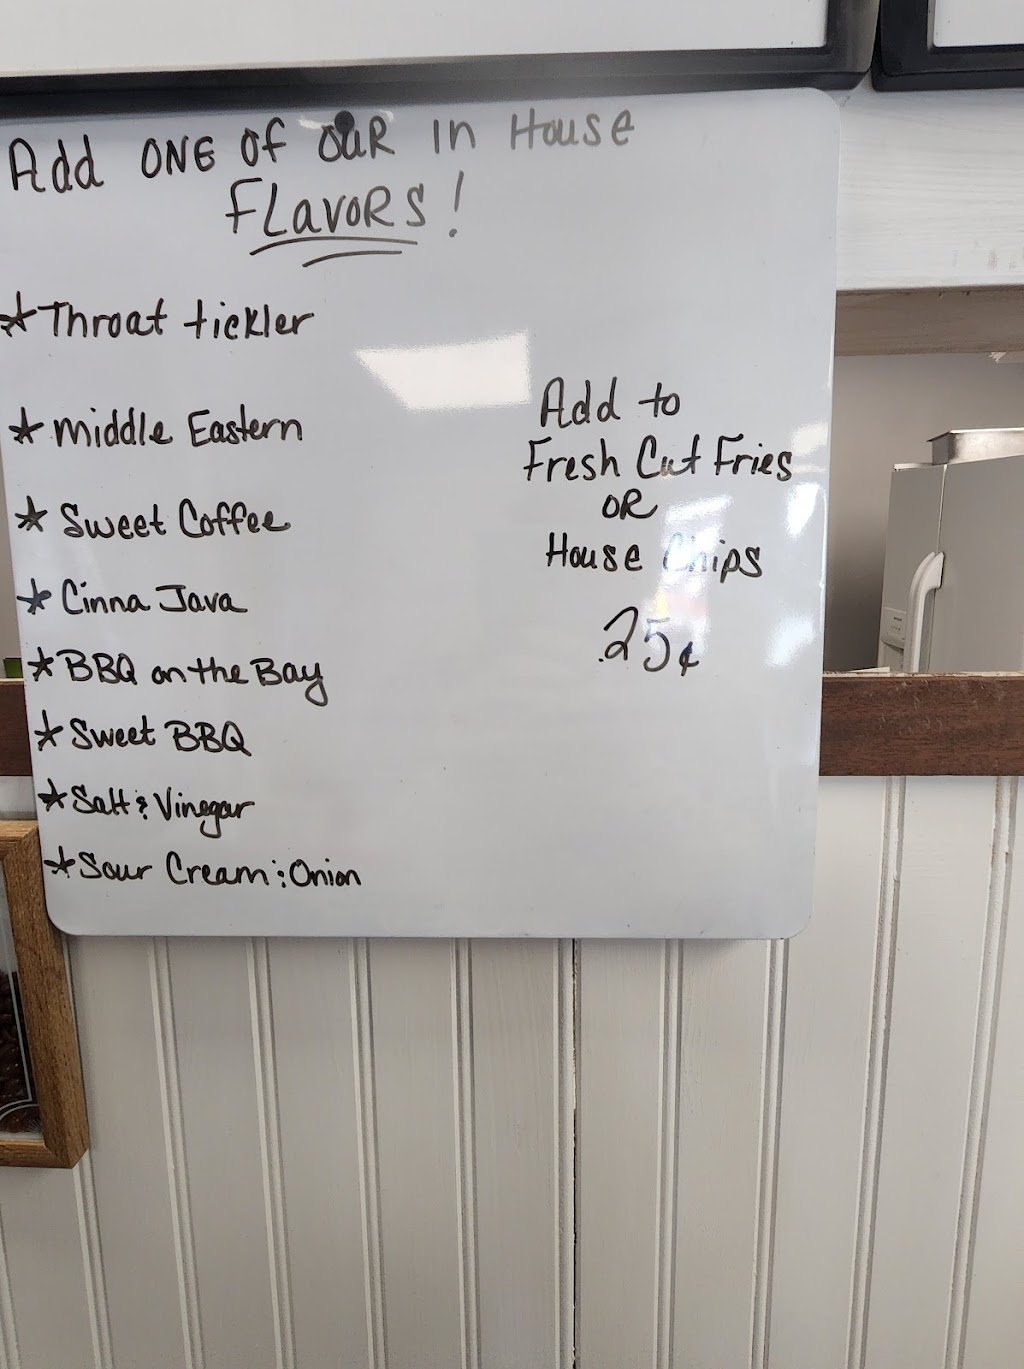 Add ONE OF OUR IN House
FLavoRS!
*Throat tickler
*Middle Eastern
*Sweet Coffee
*Cinna Java
*BBQ on the Bay
*Sweet BBQ
*Salt & Vinegar
*Sour Cream & Onion
Add to
Fresh Cut Fries
OR
House Chips
.25¢